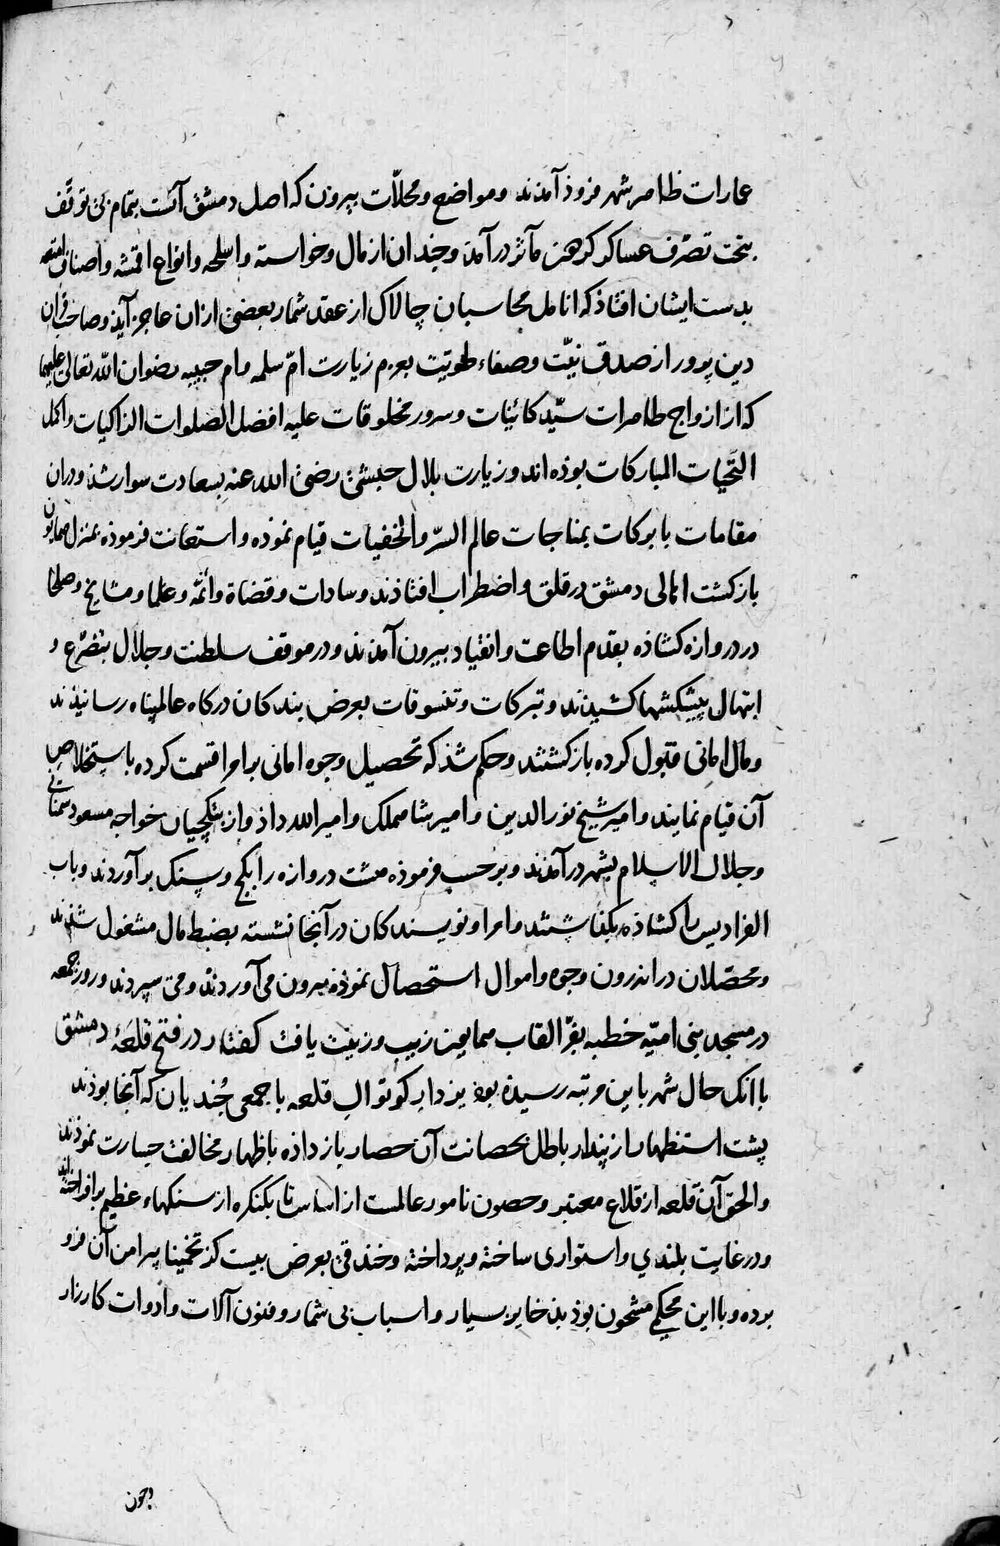 عمارات ظاهر شهر فروذ آمدند ومواضع ومحلّات بیرون که اصل دمشق آنست بتمام بی توقّف
بتحت تصرّف عساکر کردون مآثر درآمد وچندان از مال وخواسته واسلحه وانواع اقمشه واصناف امتعه
بدست ایشان افتاذ که انامل محاسبان چالاک از عقد شمار بعضی ازان عاجز آید وصاحب قران
دین پرور از صدق نیّت وصفاء طویّت بعزم زیارت امّ سلمه وام حبیبه رضوان الله تعالی علیهما
که از ازواج طاهرات سیّد کائنات وسرور مخلوقات علیه افضل الصلوات الزاکیات واکمل
التحیّات المبارکات بوذه اند وزیارت بلال حبشی رضی الله عنه بسعادت سوار شذ ودران
مقامات بابرکات بمناجات عالم السرّ والخفیات قیام نموذه واستعانت فرموذه بمنزل همایون
بازکشت اهالی دمشق در قلق واضطراب افتاذند وسادات وقضاة وائمّه وعلما ومشایخ وصلحا
در دروازه کشاذه بقدم اطاعت وانقیاد بیرون آمدند ودر موقف سلطنت وجلال بتضرّع و
ابتهال پیشکشها کشیدند وتبرکات وتنسوقات بعرض بندکان درکاه عالمپناه رسانیدند
ومال امانی قبول کرده بازکشتند وحکم شذ که تحصیل وجوه امانی برامرا قسمت کرده باستخلاص
آن قیام نمایند وامیر شیخ نورالدین وامیر شاهملک وامیر الله داذ واز بتکچیان خواجه مسعود سمنانی
وجلال الاسلام بشهر درآمدند وبرحسب فرموذه هشت دروازه را بکچ وسنک برآوردند وباب
الفرادیس را کشاذه بکذاشتند وامرا ونویسندکان در آنجا نشسته بضبط مال مشغول شدند
ومحصّلان در اندرون وجوه واموال استحصال نموذه بیرون می آوردند ومی سپردند وروز جمعه
در مسجد بنی امیّه خطبه بفرّ القاب همایون زیب وزینت یافت کفتار در فتح قلعهٔ دمشق
باآنک حال شهر باین مرتبه رسیذه بوذ یزدار کوتوال قلعه با جمعی جُندیان که آنجا بوذند
پشت استظهار از پندار باطل بحصانت آن حصار باز داذه باظهار مخالفت جسارت نموذند
والحق آن قلعه از قلاع معتبر وحصون نامور عالمست از اساس تا بکنکره از سنکهاء عظیم برافراخته اند
ودر غایت بلندی واستواری ساخته وپرداخته وخندقی بعرض بیست کز تخمینا پیرامن آن فرو
بوده وبااین محکمی مشحون بوذ بذخایر بسیار واسباب بی شمار وفنون آلات وادوات کارزار
وچون